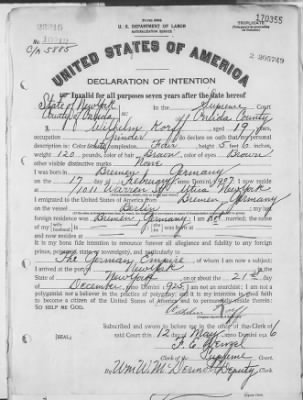 170355
U. S. DEPARTMENT OF LABOR
NATURALIZATION SERVICE
TRIPLICATE
No.
C/n 5885
2 306749
UNITED STATES OF AMERICA
DECLARATION OF INTENTION
Invalid for all purposes seven years after the date hereof
State of New York
County of Oneida
In the Supreme Court
of Oneida County
I, Wilhelm Korff, aged 19 years,
occupation Grinder, do declare on oath that my personal
description is: Color white, complexion Fair, height 5 feet 6 inches,
weight 120 pounds, color of hair Brown, color of eyes Brown
other visible distinctive marks None
I was born in Bremen, Germany
on the 17 day of February, anno Domini 1907; I now reside
at 1011 Warren St Utica New York
I emigrated to the United States of America from Bremen, Germany
on the vessel Berlin; my last
foreign residence was Bremen, Germany; I am not married; the name
of my is; was born at
and now resides at
It is my bona fide intention to renounce forever all allegiance and fidelity to any foreign
prince, potentate, state, or sovereignty, and particularly to
The German Empire, of whom I am now a subject;
I arrived at the port of New York, in the
State of New York, on or about the 21st day
of December, anno Domini 1925; I am not an anarchist; I am not a
polygamist nor a believer in the practice of polygamy; and it is my intention in good faith
to become a citizen of the United States of America and to permanently reside therein:
SO HELP ME GOD.
Korff
Subscribed and sworn to before me in the office of the Clerk of
said Court this 12 day of May, anno Domini 1926
[SEAL]
F. E. Wenzel
Clerk of the Supreme Court.
By Wm W. M. Deputy Clerk.